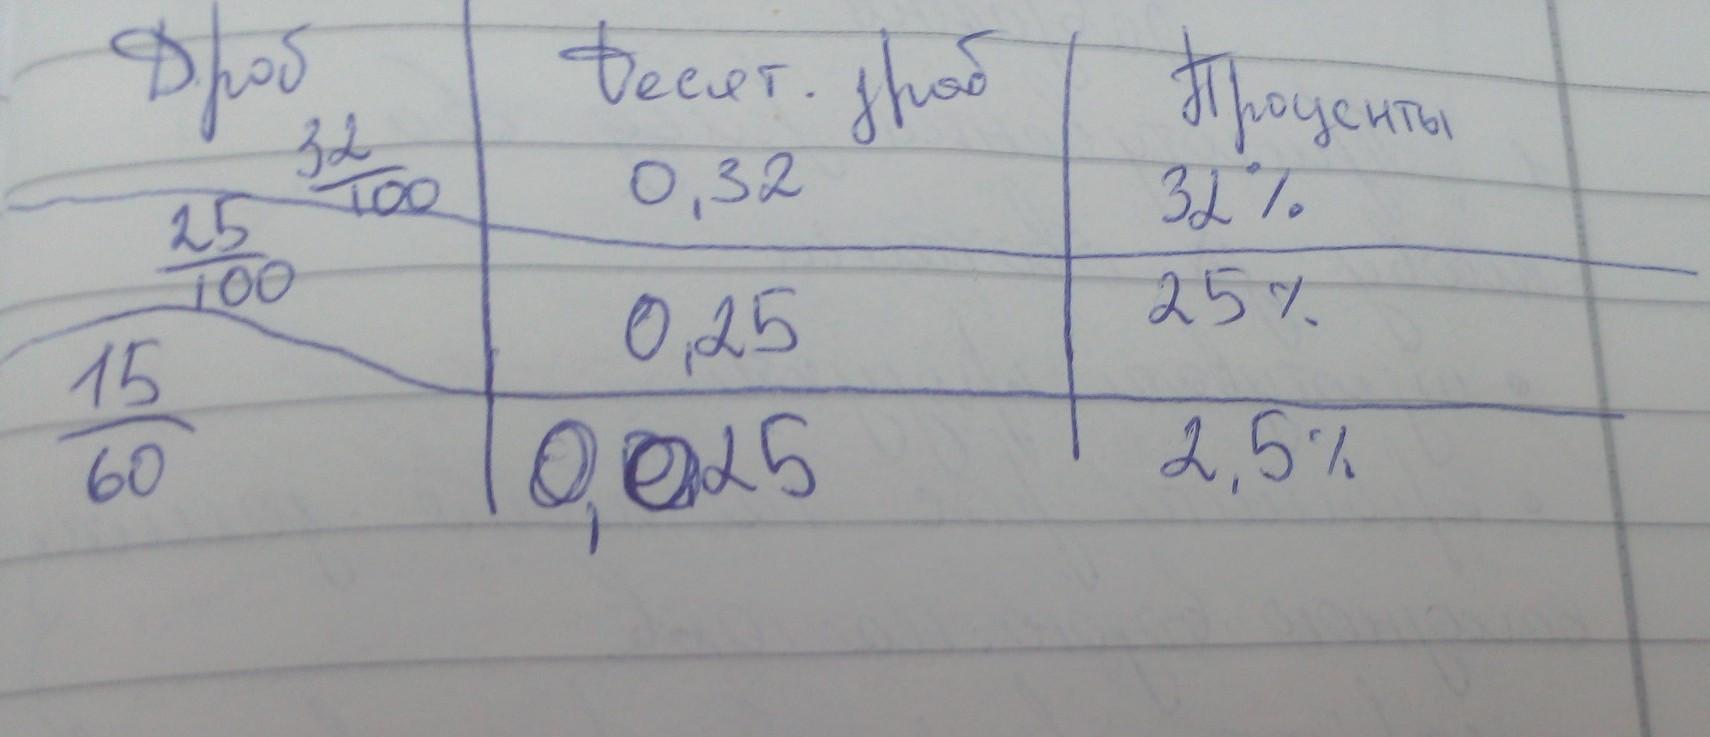 Дроб Десят. дроб Проценты
32/100 0,32 32%
25/100 0,25 25%
15/60 0,025 2,5%